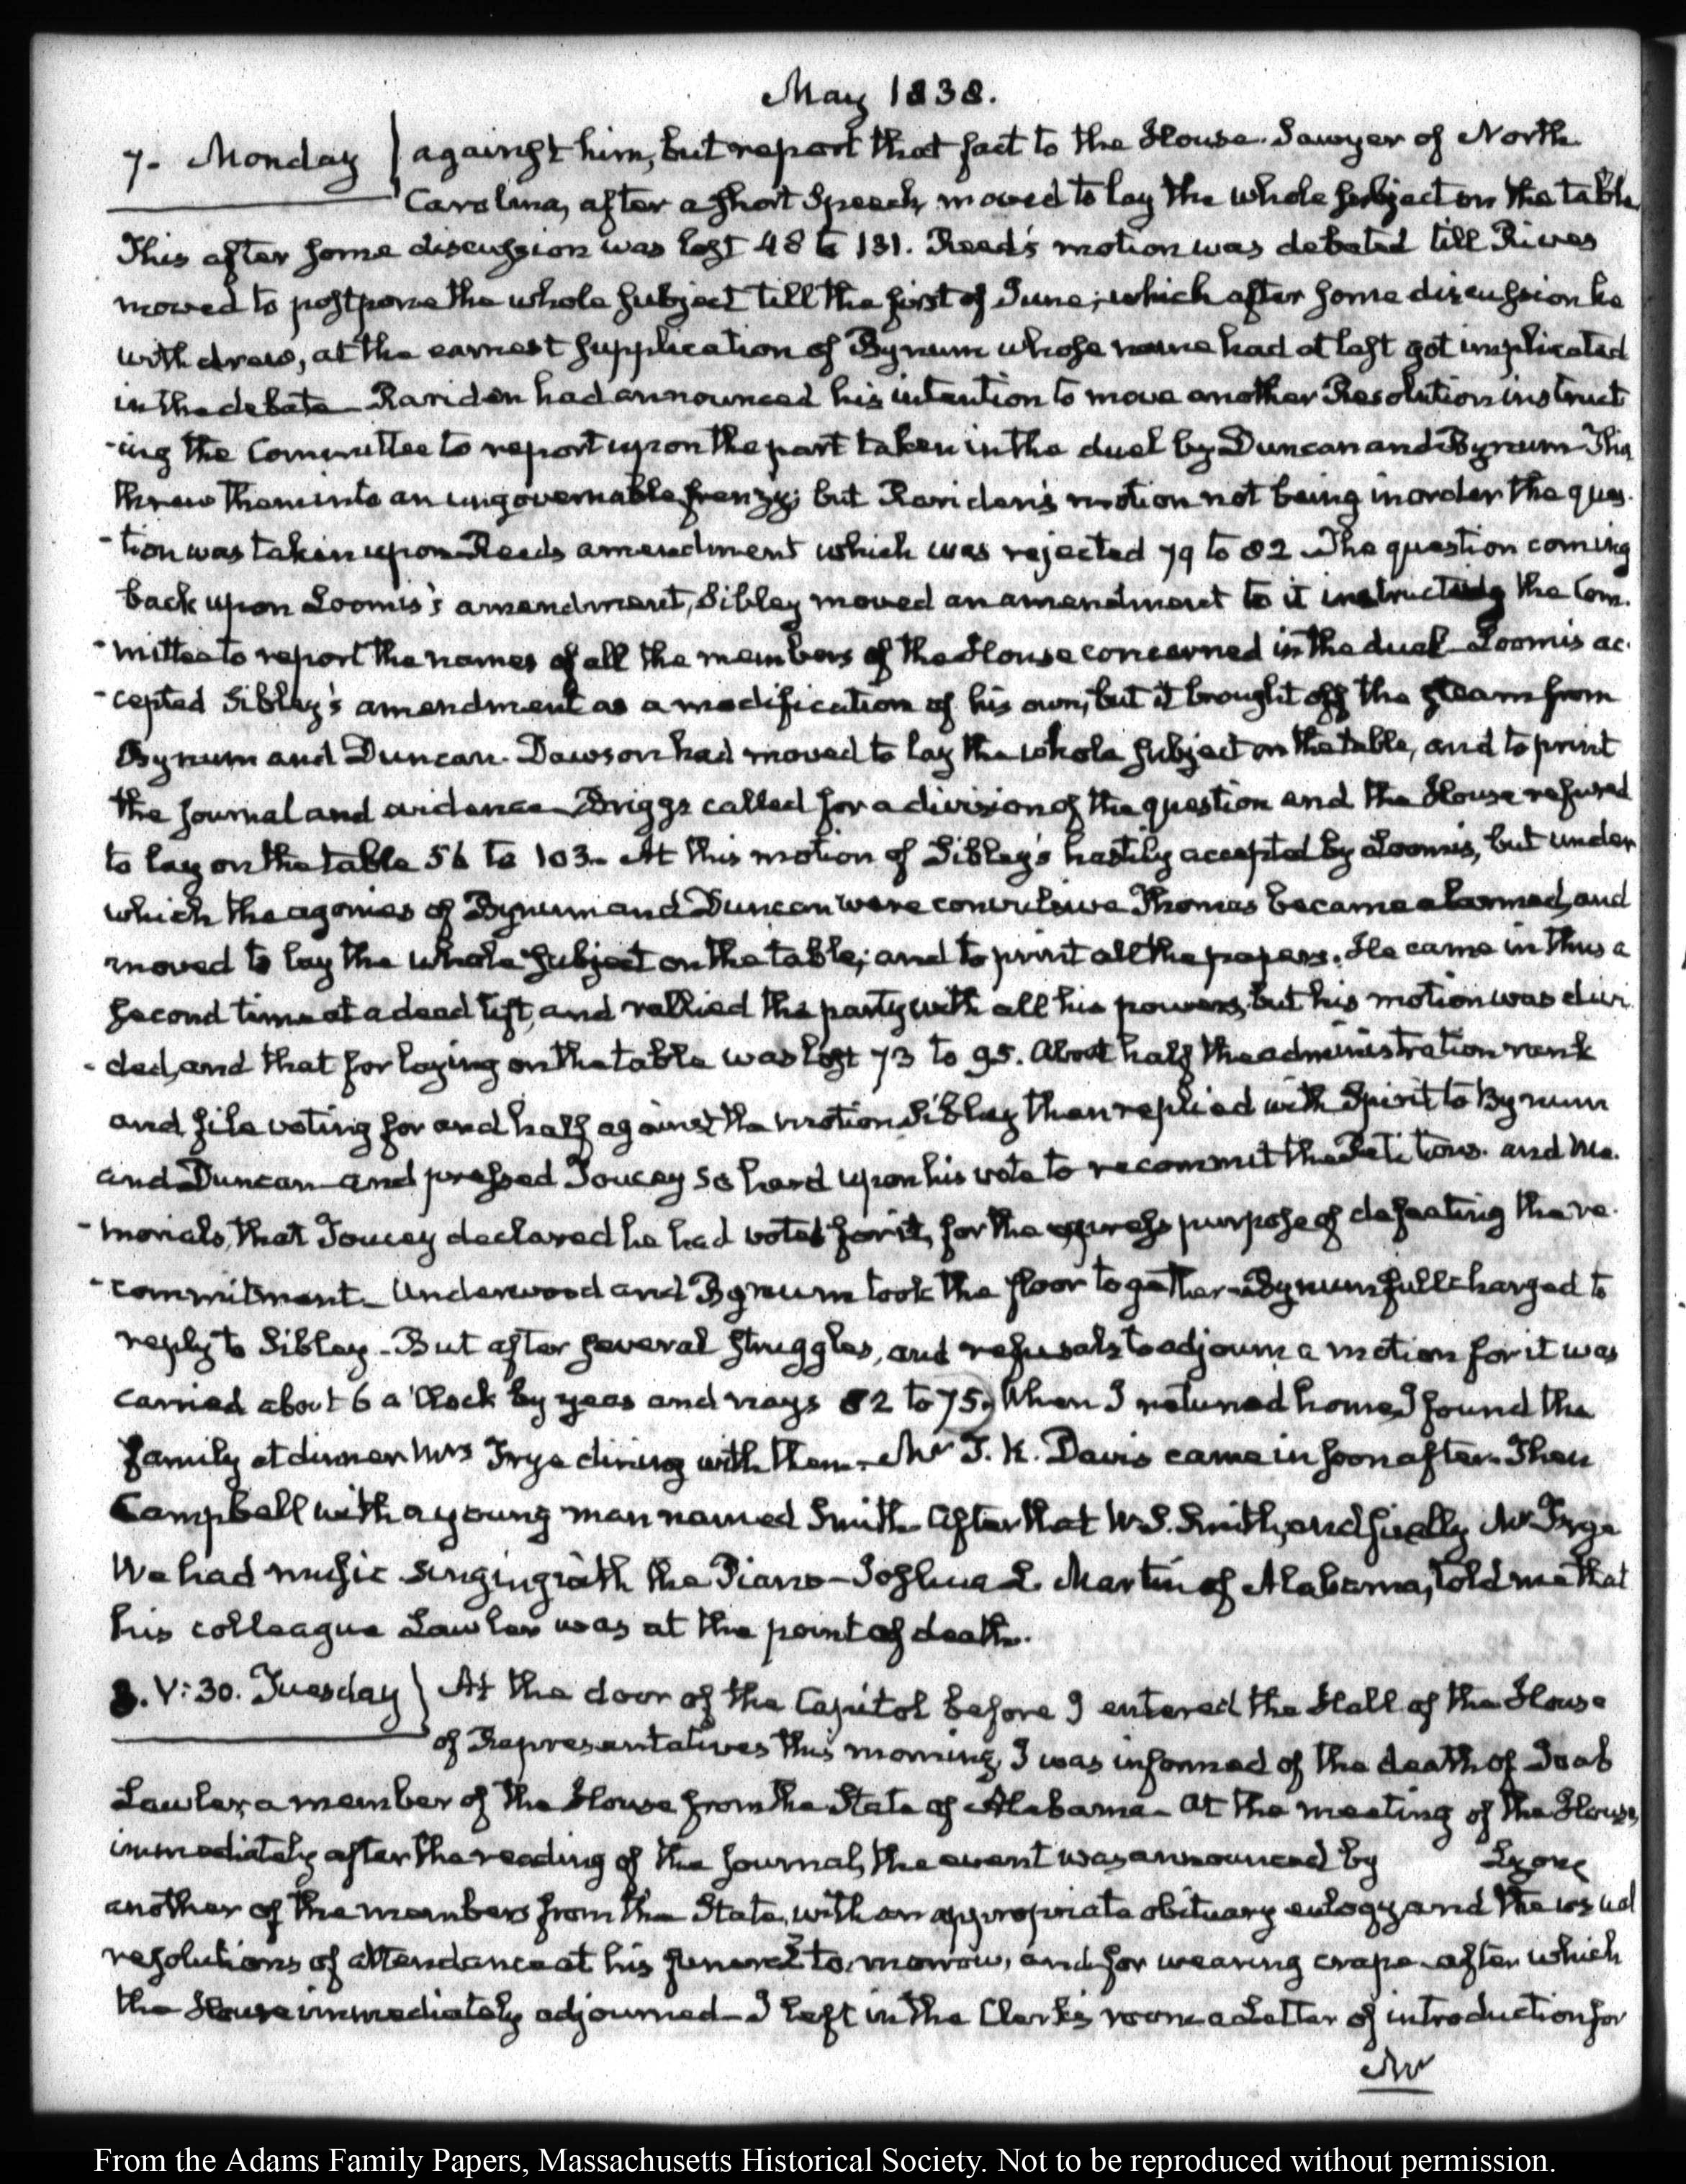 May 1838.
7. Monday } against him, but report that fact to the House. Sawyer of North
Carolina, after a short Speech, moved to lay the whole subject on the table.
This after some discussion was lost 48 to 131. Reed's motion was debated till Rives
moved to postpone the whole subject till the first of June; which after some discussion he
withdrew, at the earnest supplication of Bynum whose name had at last got implicated
in the debate—Rariden had announced his intention to move another Resolution instruct
-ing the Committee to report upon the part taken in the duel by Duncan and Bynum—This
threw them into an ungovernable frenzy; but Rariden's motion not being in order the ques-
-tion was taken upon Reeds amendment which was rejected 79 to 82. The question coming
back upon Loomis's amendment, Sibley moved an amendment to it instructing the Com-
-mittee to report the names of all the members of the House concerned in the duel—Loomis ac-
-cepted Sibley's amendment as a modification of his own, but it brought off the steam from
Bynum and Duncan. Dawson had moved to lay the whole subject on the table, and to print
the journal and evidence—Briggs called for a division of the question and the House refused
to lay on the table 56 to 103. At this motion of Sibley's hastily accepted by Loomis, but under
which the agonies of Bynum and Duncan were convulsive Thomas became alarmed, and
moved to lay the whole subject on the table; and to print all the papers. He came in thus a
second time at a dead lift, and rallied the party with all his powers, but his motion was divi
-ded, and that for laying on the table was lost 73 to 95. About half the administration rank
and file voting for and half against the motion. Sibley then replied with Spirit to Bynum
and Duncan—and pressed Toucey so hard upon his vote to recommit the Petitions. and Me-
-morials, that Toucey declared he had voted for it, for the express purpose of defeating the re-
-commitment—Underwood and Bynum took the floor together—Bynum full charged to
reply to Sibley—But after several struggles, and refusals to adjourn a motion for it was
carried about 6 o'Clock by yeas and nays 82 to 75. When I returned home I found the
family at dinner Mrs Frye dining with them—Mr T. K. Davis came in soon after. Then
Campbell with a young man named Smith. After that W. S. Smith, and finally Mr Frye
We had music singing with the Piano—Joshua L. Martin of Alabama, told me that
his colleague Lawler was at the point of death.
8. V:30. Tuesday } At the door of the Capitol before I entered the Hall of the House
of Representatives this morning, I was informed of the death of Joab
Lawler, a member of the House from the State of Alabama—At the meeting of the House,
immediately after the reading of the Journal, the event was announced by Lyon
another of the members from the State, with an appropriate obituary eulogy and the usual
resolutions of attendance at his funeral to-morrow, and for wearing crape—after which
the House immediately adjourned—I left in the Clerk's room a Letter of introduction for
Mr
From the Adams Family Papers, Massachusetts Historical Society. Not to be reproduced without permission.